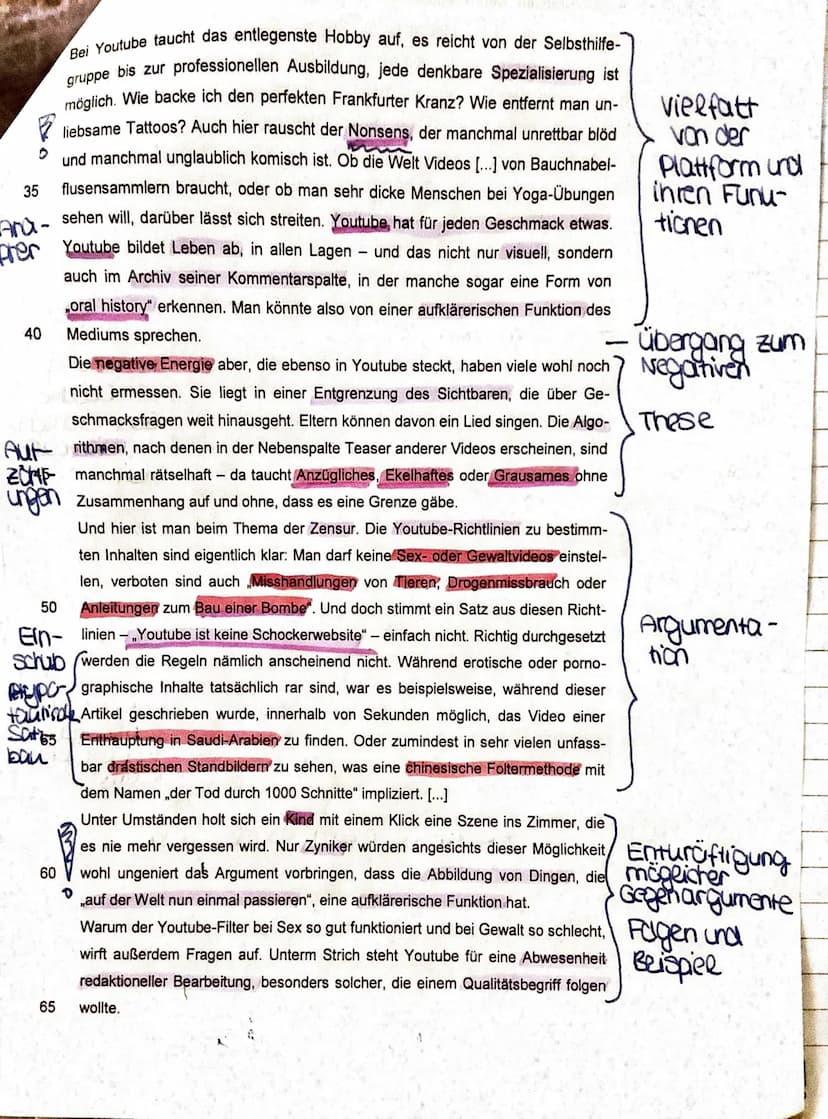 Bei Youtube taucht das entlegenste Hobby auf, es reicht von der Selbsthilfe-
gruppe bis zur professionellen Ausbildung, jede denkbare Spezialisierung ist
möglich. Wie backe ich den perfekten Frankfurter Kranz? Wie entfernt man un-
liebsame Tattoos? Auch hier rauscht der Nonsens, der manchmal unrettbar blöd
und manchmal unglaublich komisch ist. Ob die Welt Videos [...] von Bauchnabel-
35 flusensammlern braucht, oder ob man sehr dicke Menschen bei Yoga-Übungen
sehen will, darüber lässt sich streiten. Youtube hat für jeden Geschmack etwas.
Youtube bildet Leben ab, in allen Lagen – und das nicht nur visuell, sondern
auch im Archiv seiner Kommentarspalte, in der manche sogar eine Form von
„oral history“ erkennen. Man könnte also von einer aufklärerischen Funktion des
40 Mediums sprechen.
Die negative Energie aber, die ebenso in Youtube steckt, haben viele wohl noch
nicht ermessen. Sie liegt in einer Entgrenzung des Sichtbaren, die über Ge-
schmacksfragen weit hinausgeht. Eltern können davon ein Lied singen. Die Algo-
rithmen, nach denen in der Nebenspalte Teaser anderer Videos erscheinen, sind
manchmal rätselhaft – da taucht Anzügliches, Ekelhaftes oder Grausames ohne
Zusammenhang auf und ohne, dass es eine Grenze gäbe.
Und hier ist man beim Thema der Zensur. Die Youtube-Richtlinien zu bestimm-
ten Inhalten sind eigentlich klar: Man darf keine Sex- oder Gewaltvideos einstel-
len, verboten sind auch „Misshandlungen von Tieren, Drogenmissbrauch oder
50 Anleitungen zum Bau einer Bombe“. Und doch stimmt ein Satz aus diesen Richt-
linien – „Youtube ist keine Schockerwebsite“ – einfach nicht. Richtig durchgesetzt
werden die Regeln nämlich anscheinend nicht. Während erotische oder porno-
graphische Inhalte tatsächlich rar sind, war es beispielsweise, während dieser
Artikel geschrieben wurde, innerhalb von Sekunden möglich, das Video einer
55 Enthauptung in Saudi-Arabien zu finden. Oder zumindest in sehr vielen unfass-
bar drastischen Standbildern zu sehen, was eine chinesische Foltermethode mit
dem Namen „der Tod durch 1000 Schnitte“ impliziert. [...]
Unter Umständen holt sich ein Kind mit einem Klick eine Szene ins Zimmer, die
es nie mehr vergessen wird. Nur Zyniker würden angesichts dieser Möglichkeit
60 wohl ungeniert das Argument vorbringen, dass die Abbildung von Dingen, die
„auf der Welt nun einmal passieren“, eine aufklärerische Funktion hat.
Warum der Youtube-Filter bei Sex so gut funktioniert und bei Gewalt so schlecht,
wirft außerdem Fragen auf. Unterm Strich steht Youtube für eine Abwesenheit
redaktioneller Bearbeitung, besonders solcher, die einem Qualitätsbegriff folgen
65 wollte.
Ana-
pher
Auf-
zähl-
ungen
Ein-
schub
Hypo-
taktische
Satz
bau
Vielfalt
von der
Plattform und
ihren Funk-
tionen
– Übergang zum
Negativen
These
Argumenta-
tion
Entkräftigung
möglicher
Gegenargumente
Folgen und
Beispiel